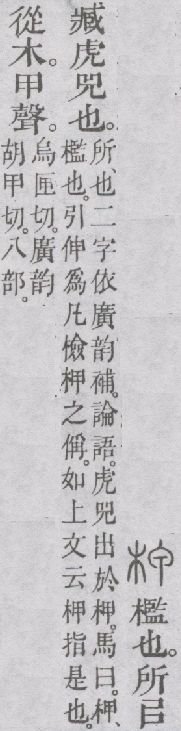 柙 檻也。所㠯
臧虎兕也。
所、也二字依廣韵補。論語。虎兕出於柙。馬曰。柙、
檻也。引伸爲凡檢柙之偁。如上文云柙指是也。
從木。甲聲。
烏匣切。廣韵
胡甲切。八部。